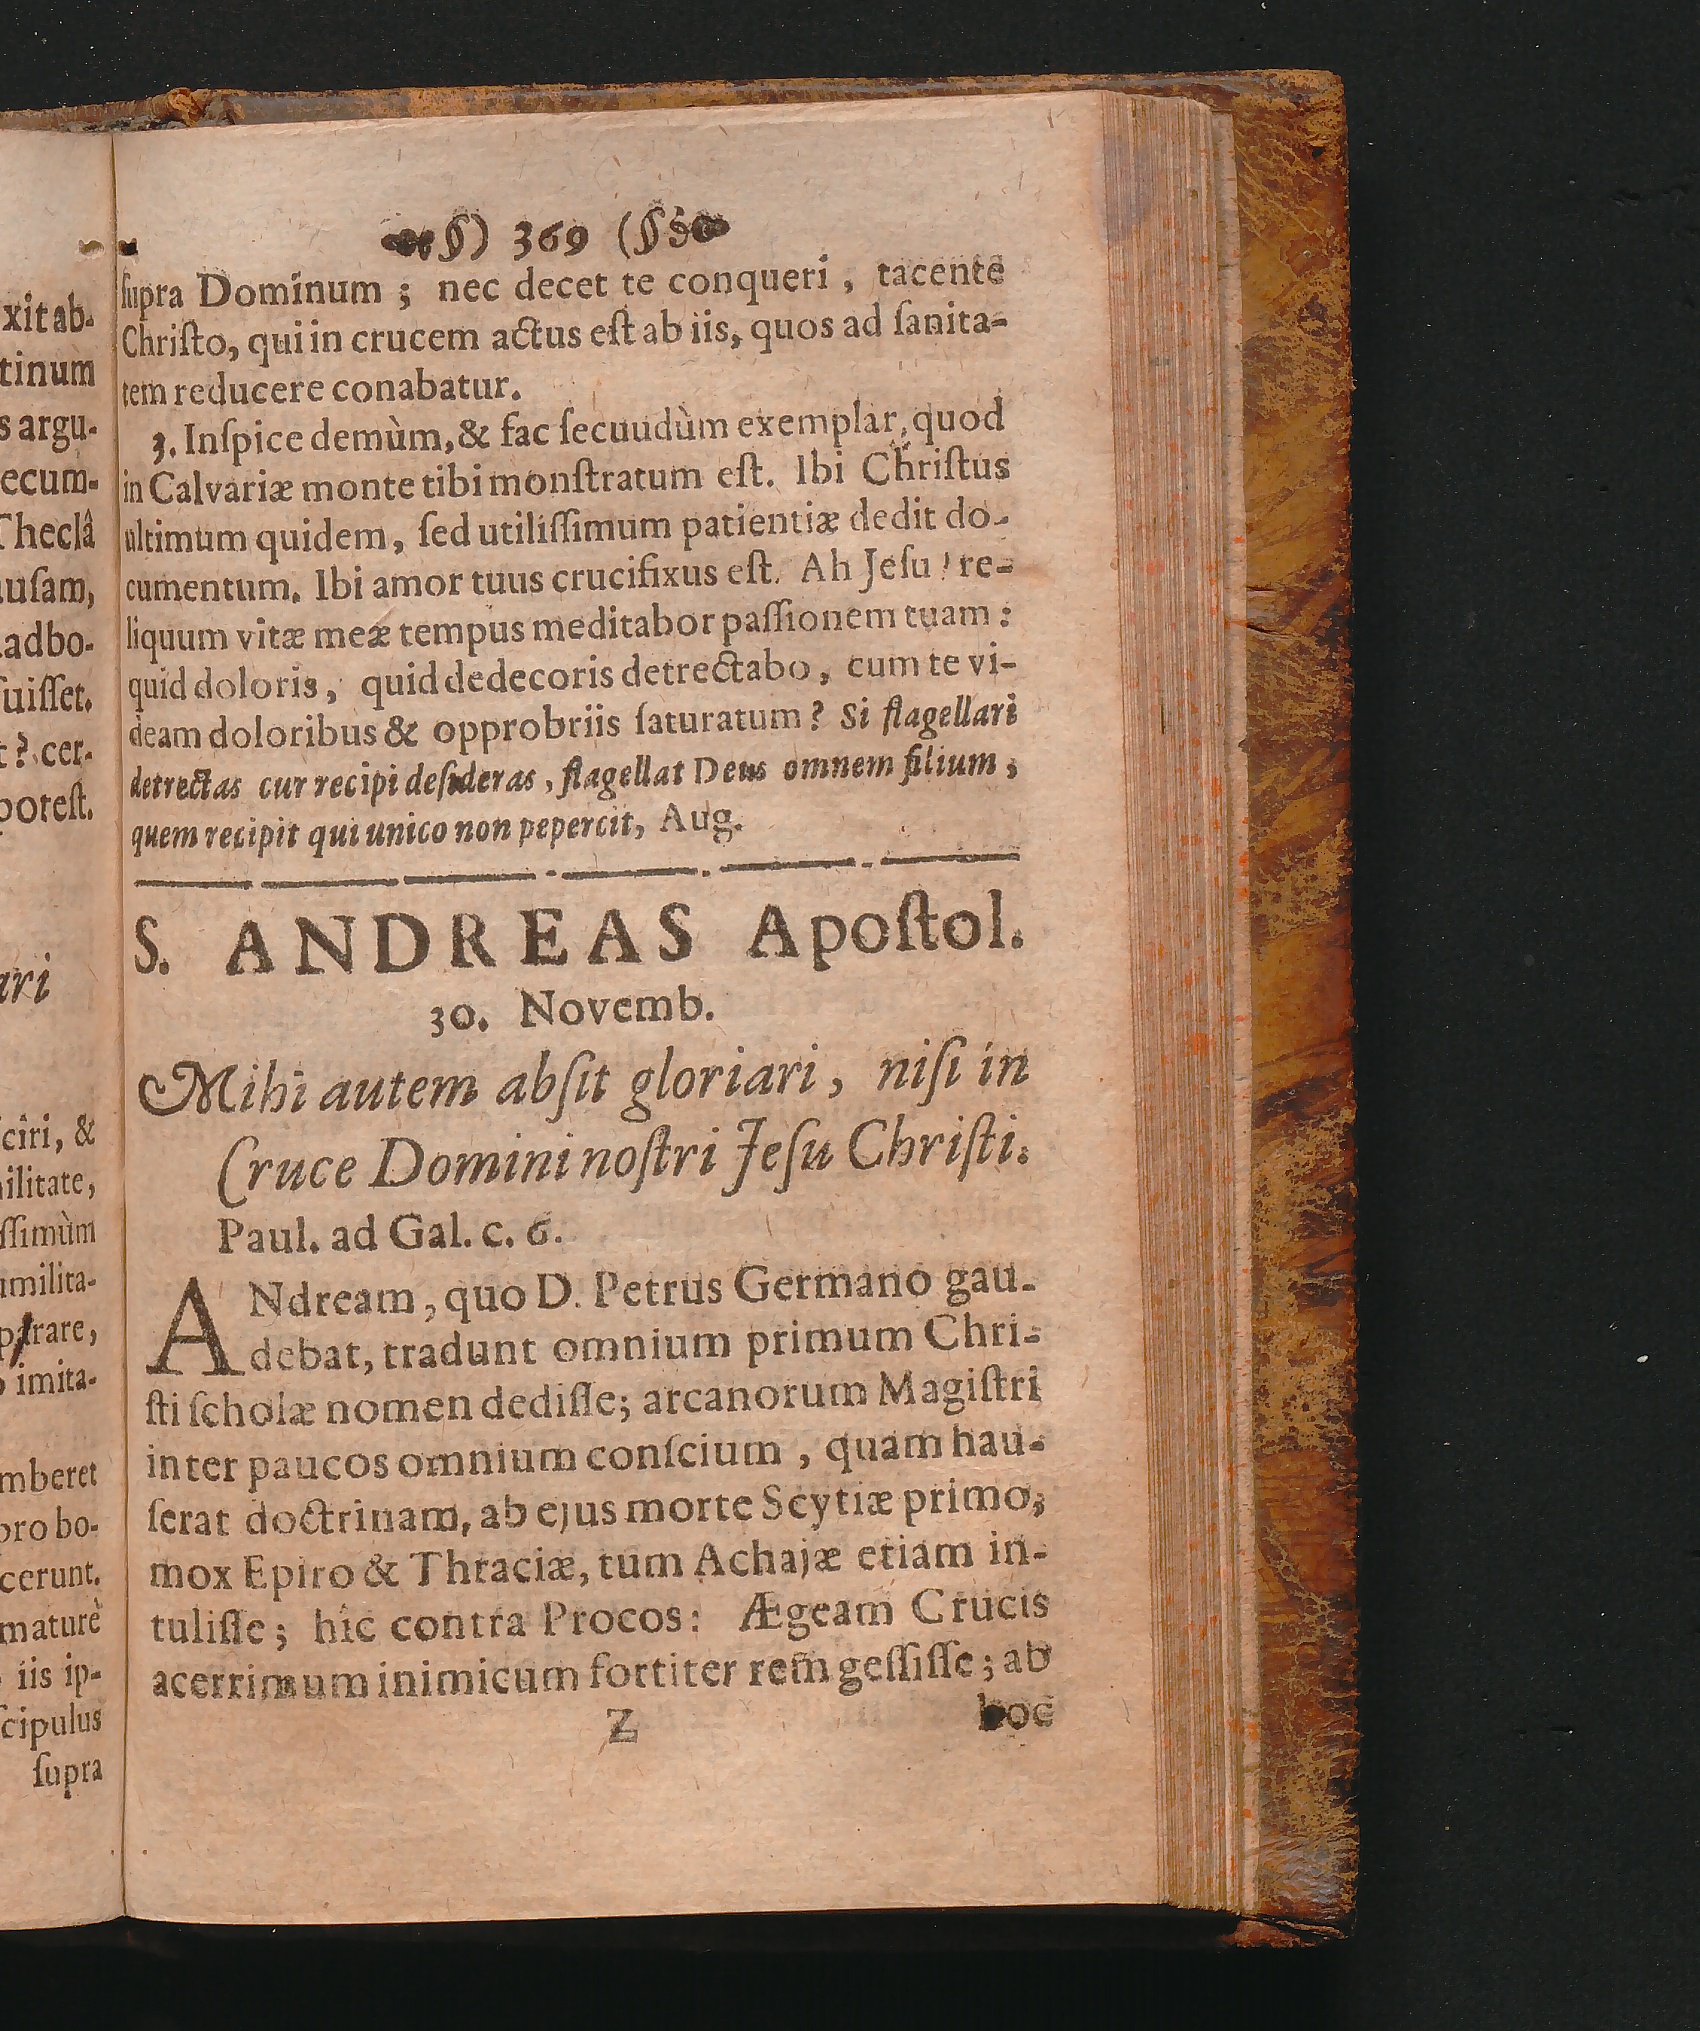 xit ab-
tinum
s argu-
ecum-
Theclâ
uſam,
adbo-
fuiſſet.
t? cer-
poteſt.
ari
ciri, &
ilitate,
ſſimùm
umilita-
parare,
o imita-
mberet
pro bo-
cerunt.
maturè
iis ip-
ſcipulus
ſupra
§) 369 (§
ſupra Dominum ; nec decet te conqueri , tacente
Chriſto, qui in crucem actus eſt ab iis, quos ad ſanita-
tem reducere conabatur.
3. Inſpice demùm, & fac ſecuudùm exemplar, quod
in Calvariæ monte tibi monſtratum eſt. Ibi Chriſtus
ultimum quidem, ſed utiliſſimum patientiæ dedit do-
cumentum. Ibi amor tuus crucifixus eſt. Ah Jeſu ! re-
liquum vitæ meæ tempus meditabor paſſionem tuam :
quid doloris, quid dedecoris detrectabo, cum te vi-
deam doloribus & opprobriis ſaturatum? Si flagellari
detrectas cur recipi deſideras, flagellat Deus omnem filium ;
quem recipit qui unico non pepercit, Aug.
S. ANDREAS Apoſtol.
30. Novemb.
Mihi autem abſit gloriari, niſi in
Cruce Domini noſtri Jeſu Chriſti.
Paul. ad Gal. c. 6.
ANdream, quo D. Petrus Germano gau-
debat, tradunt omnium primum Chri-
ſti ſcholæ nomen dediſſe; arcanorum Magiſtri
inter paucos omnium conſcium , quam hau-
ſerat doctrinam, ab ejus morte Scytiæ primo;
mox Epiro & Thraciæ, tum Achajæ etiam in-
tuliſſe; hîc contra Procos: Ægeam Crucis
acerrimum inimicum fortiter rem geſſiſſe; ab
Z hoc